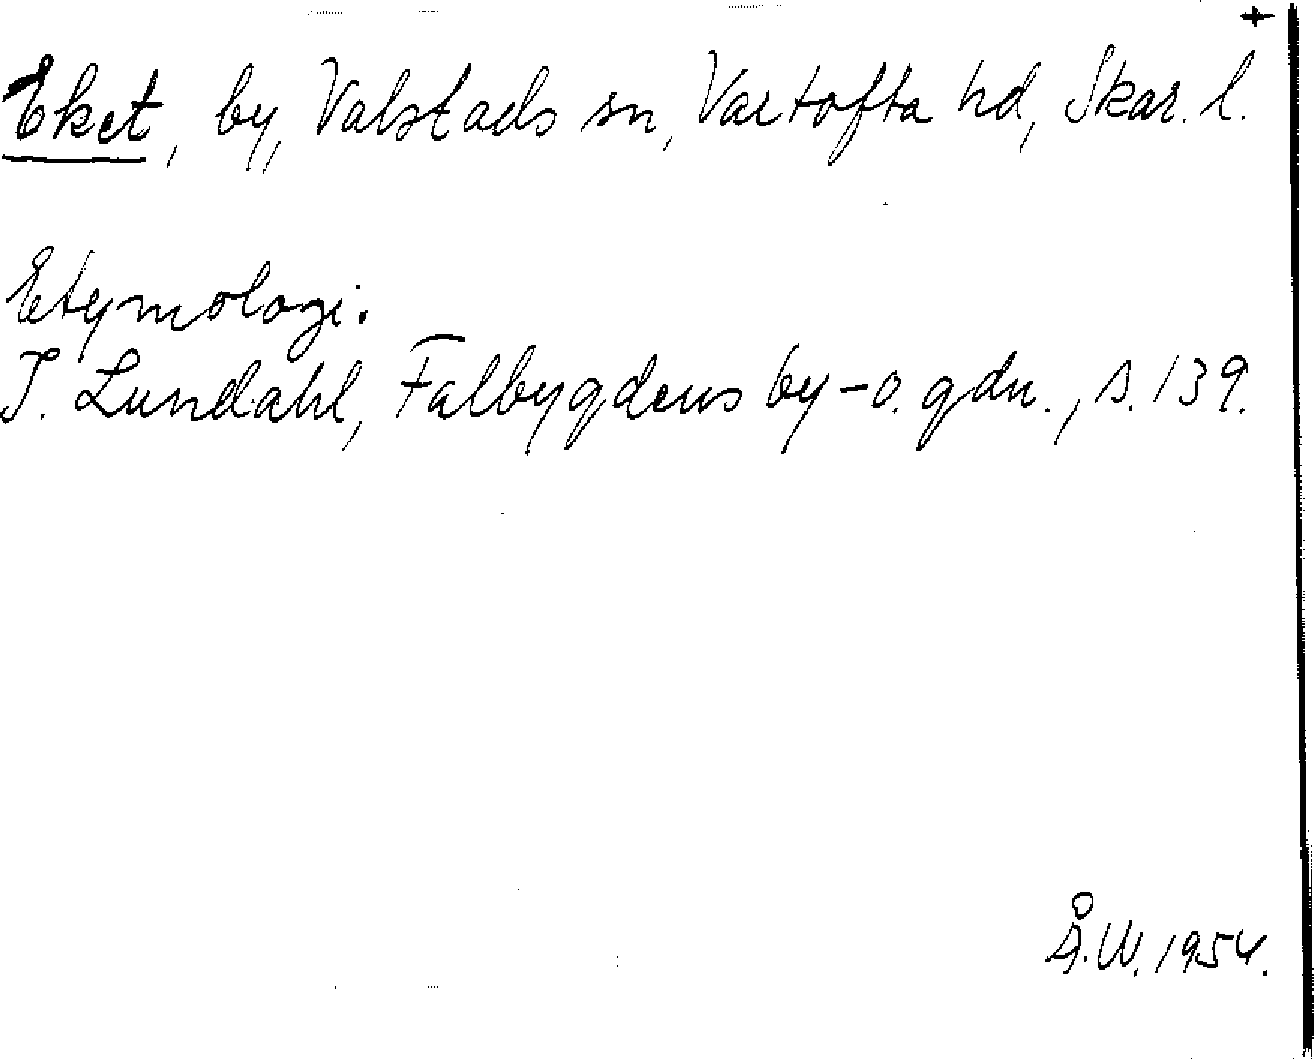 +
Eket, by, Valstads sn, Vartofta hd, Skar. l.
Etymologi.
I. Lundahl, Falbygdens by- o. gdn., s. 139.
Å.W. 1954.